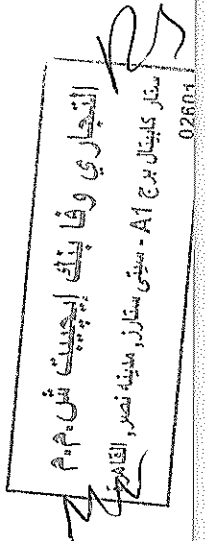 التجاري وفا بنك إيجيبت ش.م.م
ستار كابيتال برج A1 - سيتى ستارز, مدينه نصر, القاهرة
02601